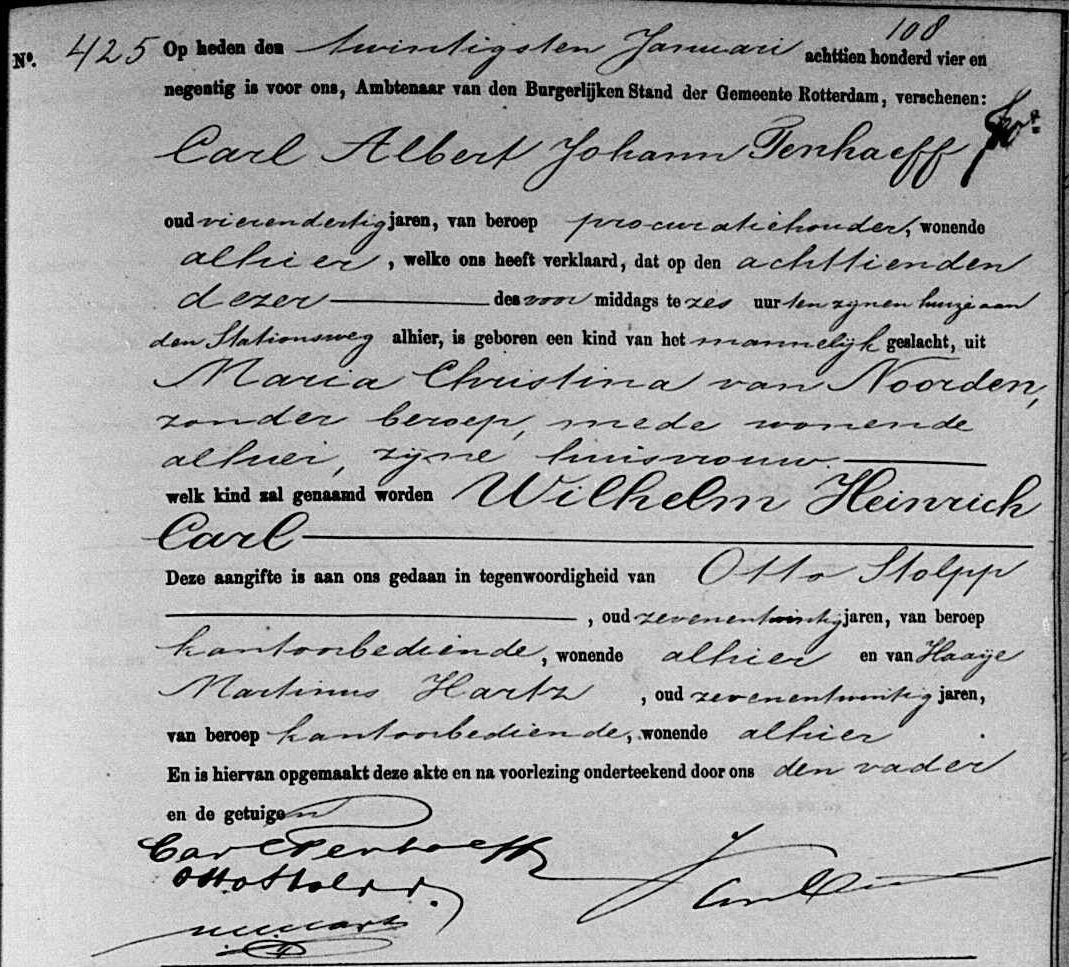 108
No. 425 Op heden den twintigsten Januari achttien honderd vier en
negentig is voor ons, Ambtenaar van den Burgerlijken Stand der Gemeente Rotterdam, verschenen:
Carl Albert Johann Tenhaeff
oud vierendertig jaren, van beroep procuratiehouder, wonende
alhier, welke ons heeft verklaard, dat op den achttienden
dezer des voor middags te zes uur ten zijnen huize aan
den Stationsweg alhier, is geboren een kind van het mannelijk geslacht, uit
Maria Christina van Noorden,
zonder beroep, mede wonende
alhier, zijne huisvrouw.
welk kind zal genaamd worden Wilhelm Heinrich
Carl
Deze aangifte is aan ons gedaan in tegenwoordigheid van Otto Stolpp
, oud zevenentwintig jaren, van beroep
kantoorbediende, wonende alhier en van Haaije
Martinus Hartz, oud zevenentwintig jaren,
van beroep kantoorbediende, wonende alhier
En is hiervan opgemaakt deze akte en na voorlezing onderteekend door ons den vader
en de getuigen
Carl Tenhaeff
Otto Stolpp.